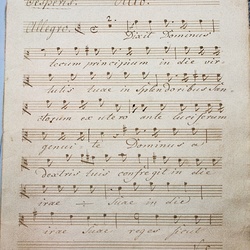 Vesperis. Alto.
Allegro. Dixit Dominus
tecum principium in die vir-
tutis tuae in Splendoribus San-
ctorum ex utero ante luciferum
genui te Dominus a
dextris tuis confregit in die
irae suae in die
irae suae reges